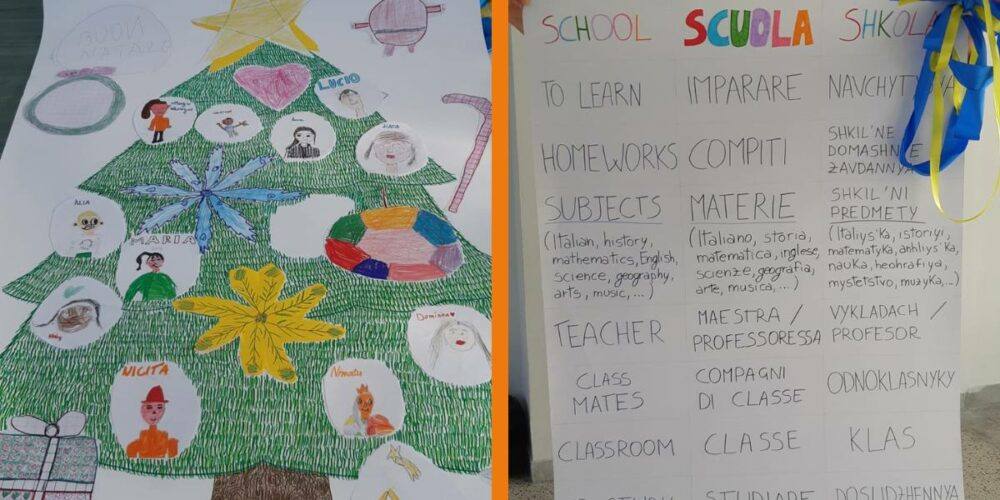 LUCIO
MARIA
NICITA
SCHOOL SCUOLA SHKOLA
TO LEARN IMPARARE
HOMEWORKS COMPITI
SHKIL'NE
ZAVDANNYA
SUBJECTS
(Italian, history,
mathematics, English,
science, geography,
arts, music, ...)
MATERIE
(Italiano, storia,
matematica, inglese,
scienze, geografia,
arte, musica, ...)
SHKIL'NI
PREDMETY
(Italiys'ka, istoriyi,
matematyka, anhliys'ka,
nauka, heohrafiya,
mystetstvo, muzyka, ...)
TEACHER
MAESTRA /
PROFESSORESSA
VYKLADACH /
PROFESOR
CLASS
MATES
COMPAGNI
DI CLASSE
ODNOKLASNYKY
CLASSROOM CLASSE KLAS
STUDIARE